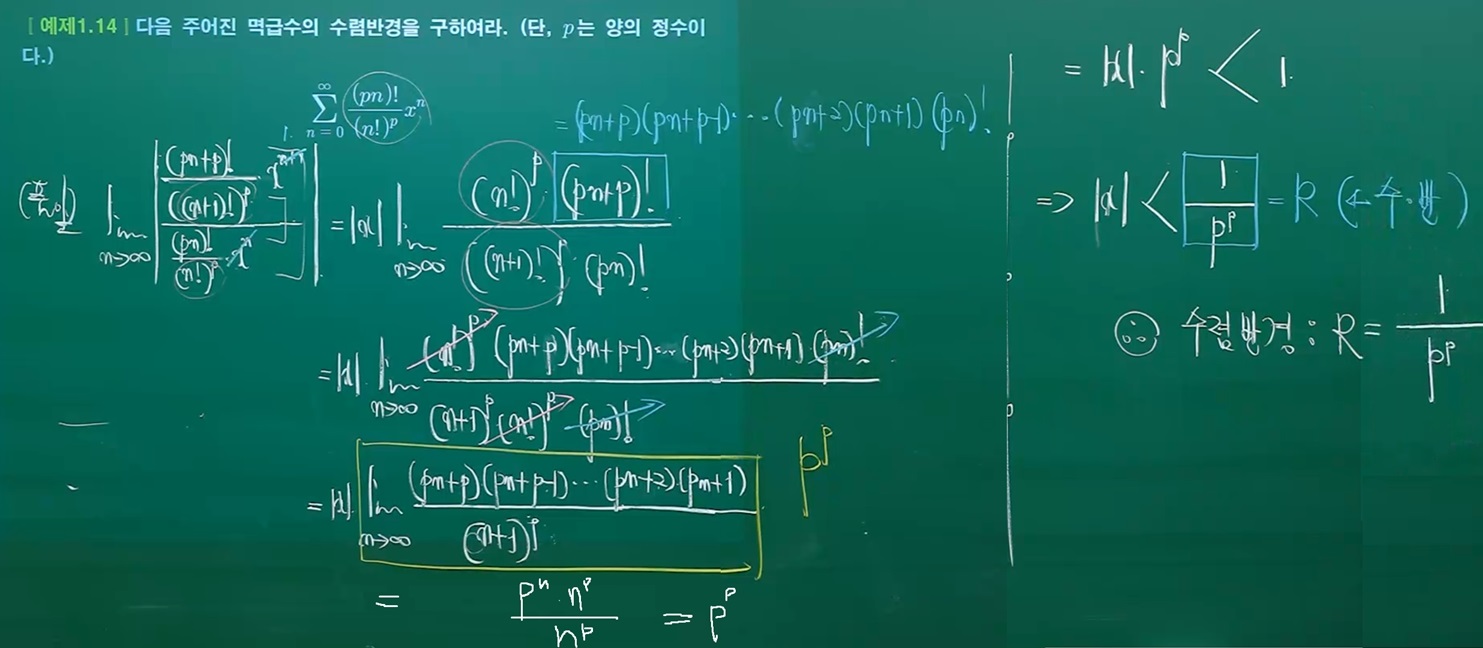 [예제1.14] 다음 주어진 멱급수의 수렴반경을 구하여라. (단, p는 양의 정수이
다.)
\sum_{n=0}^{\infty} \frac{(pn)!}{(n!)^p} x^n
= (pn+p)(pn+p-1)⋯(pn+2)(pn+1)(pn)!
(풀이) \lim_{n→∞} \left| \frac{\frac{(pn+p)!}{((n+1)!)^p} x^{n+1}}{\frac{(pn)!}{(n!)^p} x^n} \right| = |x| \lim_{n→∞} \frac{(n!)^p (pn+p)!}{((n+1)!)^p ⋅ (pn)!}
= |x| ⋅ \lim_{n→∞} \frac{(n!)^p (pn+p)(pn+p-1)⋯(pn+2)(pn+1)⋅(pn)!}{(n+1)^p (n!)^p (pn)!}
= |x| ⋅ \lim_{n→∞} \frac{(pn+p)(pn+p-1)⋯(pn+2)⋅(pn+1)}{(n+1)^p}
p^p
= \frac{p^n ⋅ n^p}{n^p} = p^p
= |x| ⋅ p^p < 1.
⇒ |x| < \frac{1}{p^p} = R (←수.반)
∴ 수렴반경 : R = \frac{1}{p^p}